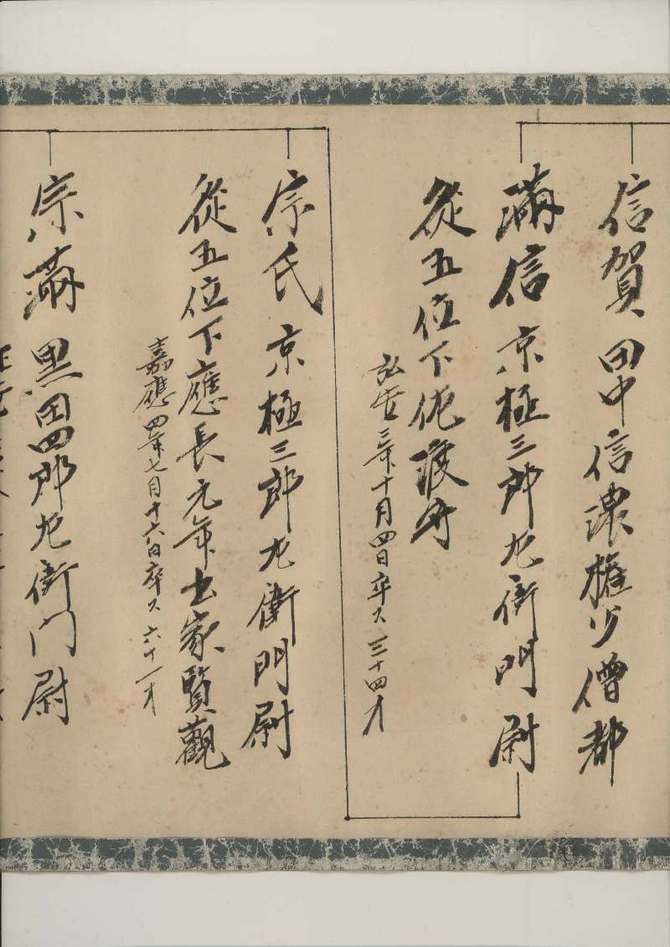 信賀 田中信濃権少僧都
満信 京極三郎左衛門尉
従五位下佐渡守
弘安三年十月四日卒ス 三十四才
宗氏 京極三郎左衛門尉
従五位下應長元年出家賢觀
嘉應四年七月十六日卒ス 六十一才
宗満 黒田四郎左衛门尉